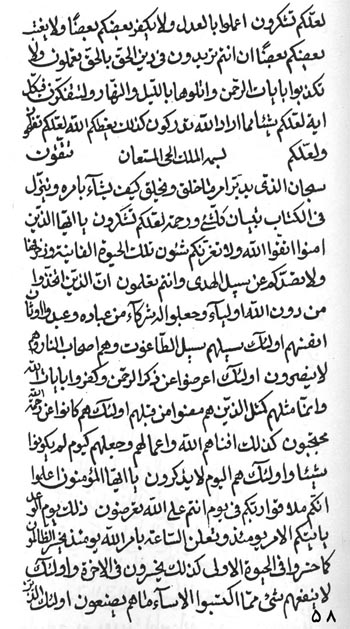 لعلكم تشكرون اعملوا بالعدل ولا يكفر بعضكم بعضا ولا يغتب
بعضكم بعضا ان انتم تريدون في دين الحق بالحق تعملون ولا
تكذبوا بايات الرحمن واتلوها بالليل والنهار ولتفكرن في كل
اية لعلكم بشيء مما اراد الله تدركون كذلك يعظكم الله لعلكم تعلمون
ولعلكم تتقون بسم الملك الحي المستعان
سبحان الذي يدبر امر ما خلق ويخلق كيف يشآء بامره وينزل
في الكتاب تبيان كلشيء ورحمة لعلكم تشكرون يا ايها الذين
امنوا اتقوا الله ولا تغرنكم شئون تلك الحيوة الفانية وزخرفها
ولا تصدنكم عن سبيل الهدى وانتم تعلمون ان الذين اتخذوا
من دون الله اوليآء وجعلوا له شركآء من عباده وعبدوا اوثان
انفسهم اولئك سبيلهم سبيل الطاغوت وهم اصحاب النار وهم
لا ينصرون اولئك اعرضوا عن ذكر الرحمن وكفروا بايات الله
وانما مثلهم كمثل الذين هم مضوا من قبلهم اولئك هم كانوا عن رحمة الله
محتجبون كذلك افناهم الله واعمالهم وجعلهم كيوم لم يكونوا
شيئا واولئك هم اليوم لا يذكرون يا ايها المؤمنون اعلموا
انكم ملاقوا ربكم في يوم انتم على الله تعرضون ذلك يوم
ياتيكم الامر يومئذ وتعلن الساعة بامر الله يومئذ يخسر الظالمون
كما خسروا في الحيوة الاولى كذلك يخسرون في الاخرة واولئك
لا ينفعهم شيء مما اكتسبوا الا سآء ما هم يصنعون اولئك الذين
٥٨